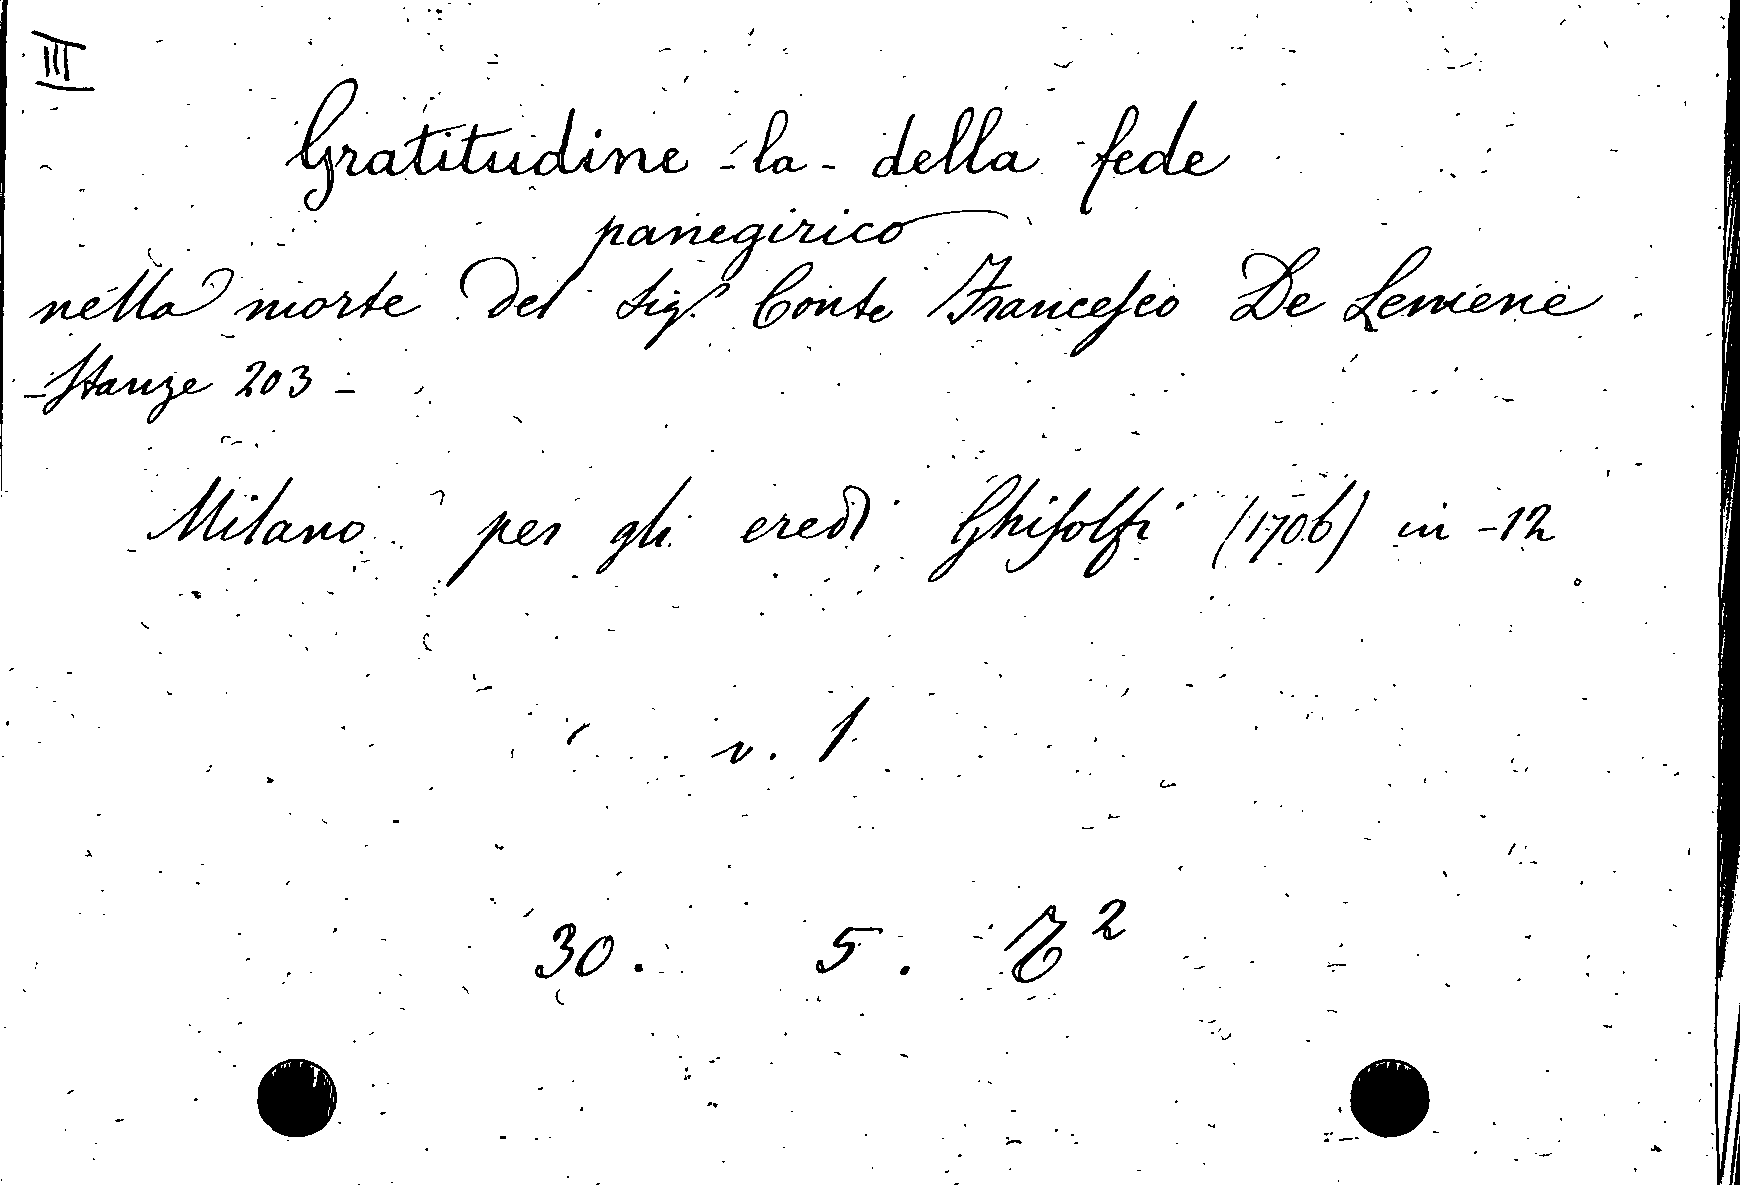 III
Gratitudine - la - della fede
panegirico
nella morte del Sig.r Conte Francesco De Lemene
- Stanze 203 -
Milano per gli eredi Ghisolfi (1706) in -12
v. 1
30. 5. 2